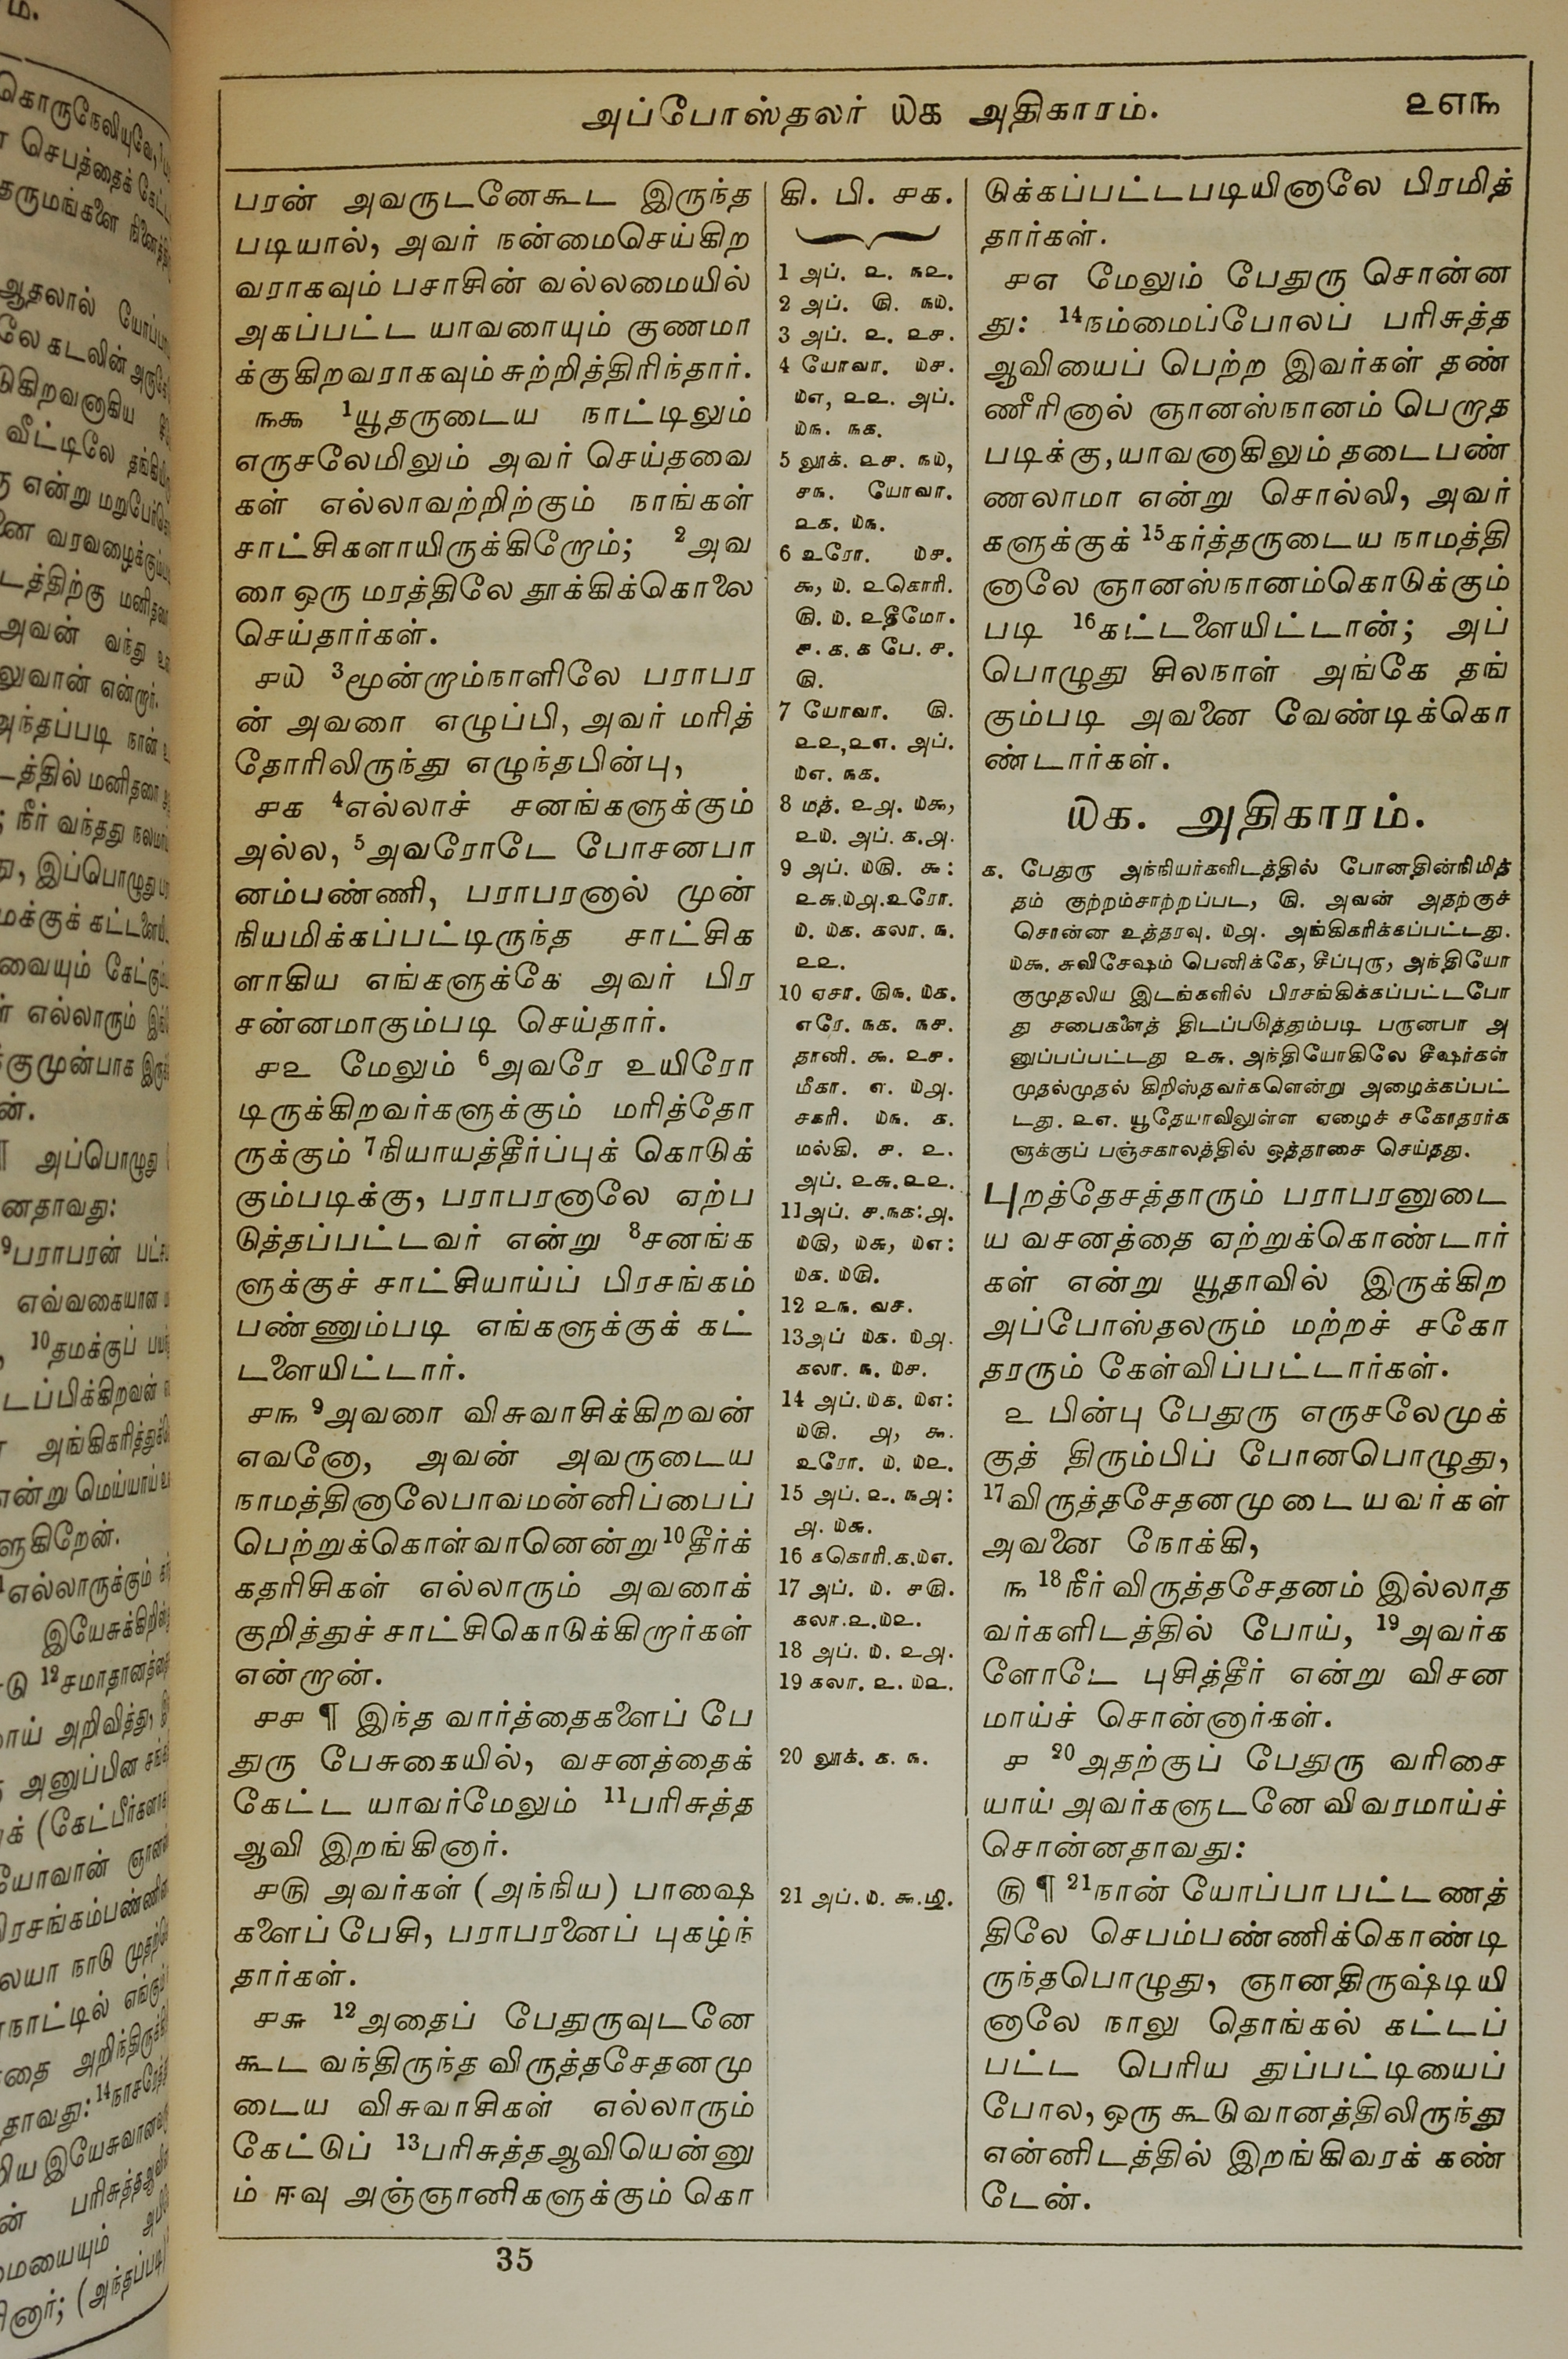 அப்போஸ்தலர் ௰௧ அதிகாரம்.
௨௭௩
பரன் அவருடனேகூட இருந்த
படியால், அவர் நன்மைசெய்கிற
வராகவும் பசாசின் வல்லமையில்
அகப்பட்ட யாவரையும் குணமா
க்குகிறவராகவும் சுற்றித்திரிந்தார்.
௩௯ 1யூதருடைய நாட்டிலும்
எருசலேமிலும் அவர் செய்தவை
கள் எல்லாவற்றிற்கும் நாங்கள்
சாட்சிகளாயிருக்கிறோம்; 2அவ
ரை ஒரு மரத்திலே தூக்கிக்கொலை
செய்தார்கள்.
௪௰ 3மூன்றாம்நாளிலே பராபர
ன் அவரை எழுப்பி, அவர் மரித்
தோரிலிருந்து எழுந்தபின்பு,
௪௧ 4எல்லாச் சனங்களுக்கும்
அல்ல, 5அவரோடே போசனபா
னம்பண்ணி, பராபரனால் முன்
நியமிக்கப்பட்டிருந்த சாட்சிக
ளாகிய எங்களுக்கே அவர் பிர
சன்னமாகும்படி செய்தார்.
௪௨ மேலும் 6அவரே உயிரோ
டிருக்கிறவர்களுக்கும் மரித்தோ
ருக்கும் 7நியாயத்தீர்ப்புக் கொடுக்
கும்படிக்கு, பராபரனாலே ஏற்ப
டுத்தப்பட்டவர் என்று 8சனங்க
ளுக்குச் சாட்சியாய்ப் பிரசங்கம்
பண்ணும்படி எங்களுக்குக் கட்
டளையிட்டார்.
௪௩ 9அவரை விசுவாசிக்கிறவன்
எவனோ, அவன் அவருடைய
நாமத்தினாலேபாவமன்னிப்பைப்
பெற்றுக்கொள்வானென்று 10தீர்க்
கதரிசிகள் எல்லாரும் அவரைக்
குறித்துச் சாட்சிகொடுக்கிறார்கள்
என்றான்.
௪௪ ¶ இந்த வார்த்தைகளைப் பே
துரு பேசுகையில், வசனத்தைக்
கேட்ட யாவர்மேலும் 11பரிசுத்த
ஆவி இறங்கினார்.
௪௫ அவர்கள் (அந்நிய) பாஷை
களைப் பேசி, பராபரனைப் புகழ்ந்
தார்கள்.
௪௬ 12அதைப் பேதுருவுடனே
கூட வந்திருந்த விருத்தசேதனமு
டைய விசுவாசிகள் எல்லாரும்
கேட்டுப் 13பரிசுத்தஆவியென்னு
ம் ஈவு அஞ்ஞானிகளுக்கும் கொ
கி. பி. ௪௧.
1 அப். ௨. ௩௨.
2 அப். ௫. ௩௰.
3 அப். ௨. ௨௪.
4 யோவா. ௰௪.
௰௭, ௨௨. அப்.
௰௩. ௩௧.
5 லூக். ௨௪. ௩௰,
௪௩. யோவா.
௨௧. ௰௩.
6 உரோ. ௰௪.
௯, ௰. ௨கொரி.
௫. ௰. ௨தீமோ.
௪. ௧. ௧ பே. ௪.
௫.
7 யோவா. ௫.
௨௨,௨௭. அப்.
௰௭. ௩௧.
8 மத். ௨௮. ௰௯,
௨௰. அப். ௧.௮.
9 அப். ௰௫. ௯:
௨௬.௰௮.உரோ.
௰. ௰௧. கலா. ௩.
௨௨.
10 ஏசா. ௫௩. ௰௧.
எரே. ௩௧. ௩௪.
தானி. ௯. ௨௪.
மீகா. ௭. ௰௮.
சகரி. ௰௩. ௧.
மல்கி. ௪. ௨.
அப். ௨௬.௨௨.
11அப். ௪.௩௧:௮.
௰௫, ௰௬, ௰௭:
௰௧. ௰௫.
12 ௨௩. வச.
13அப் ௰௧. ௰௮.
கலா. ௩. ௰௪.
14 அப்.௰௧. ௰௭:
௰௫. ௮, ௯.
உரோ. ௰. ௰௨.
15 அப். ௨. ௩௮:
௮. ௰௬.
16 ௧கொரி.௧.௰௭.
17 அப். ௰. ௪௫.
கலா.௨.௰௨.
18 அப். ௰. ௨௮.
19 கலா. ௨. ௰௨.
20 லூக். ௧. ௩.
21 அப். ௰. ௯.
டுக்கப்பட்டபடியினாலே பிரமித்
தார்கள்.
௪௭ மேலும் பேதுரு சொன்ன
து: 14நம்மைப்போலப் பரிசுத்த
ஆவியைப் பெற்ற இவர்கள் தண்
ணீரினால் ஞானஸ்நானம் பெறாத
படிக்கு,யாவனாகிலும் தடைபண்
ணலாமா என்று சொல்லி, அவர்
களுக்குக் 15கர்த்தருடைய நாமத்தி
னாலே ஞானஸ்நானம்கொடுக்கும்
படி 16கட்டளையிட்டான்; அப்
பொழுது சிலநாள் அங்கே தங்
கும்படி அவனை வேண்டிக்கொ
ண்டார்கள்.
௰௧. அதிகாரம்.
௧. பேதுரு அந்நியர்களிடத்தில் போனதின்நிமித்
தம் குற்றம்சாற்றப்பட, ௫. அவன் அதற்குச்
சொன்ன உத்தரவு. ௰௮. அங்கிகரிக்கப்பட்டது.
௰௯. சுவிசேஷம் பெனிக்கே, சீப்புரு, அந்தியோ
குமுதலிய இடங்களில் பிரசங்கிக்கப்பட்டபோ
து சபைகளைத் திடப்படுத்தும்படி பருனபா அ
னுப்பப்பட்டது ௨௬. அந்தியோகிலே சீஷர்கள்
முதல்முதல் கிறிஸ்தவர்களென்று அழைக்கப்பட்
டது. ௨௭. யூதேயாவிலுள்ள ஏழைச் சகோதரர்க
ளுக்குப் பஞ்சகாலத்தில் ஒத்தாசை செய்தது.
புறத்தேசத்தாரும் பராபரனுடை
ய வசனத்தை ஏற்றுக்கொண்டார்
கள் என்று யூதாவில் இருக்கிற
அப்போஸ்தலரும் மற்றச் சகோ
தரரும் கேள்விப்பட்டார்கள்.
௨ பின்பு பேதுரு எருசலேமுக்
குத் திரும்பிப் போனபொழுது,
17விருத்தசேதனமுடையவர்கள்
அவனை நோக்கி,
௩ 18நீர் விருத்தசேதனம் இல்லாத
வர்களிடத்தில் போய், 19அவர்க
ளோடே புசித்தீர் என்று விசன
மாய்ச் சொன்னார்கள்.
௪ 20அதற்குப் பேதுரு வரிசை
யாய் அவர்களுடனே விவரமாய்ச்
சொன்னதாவது:
௫ ¶ 21நான் யோப்பா பட்டணத்
திலே செபம்பண்ணிக்கொண்டி
ருந்தபொழுது, ஞானதிருஷ்டியி
னாலே நாலு தொங்கல் கட்டப்
பட்ட பெரிய துப்பட்டியைப்
போல, ஒரு கூடுவானத்திலிருந்து
என்னிடத்தில் இறங்கிவரக் கண்
டேன்.
35